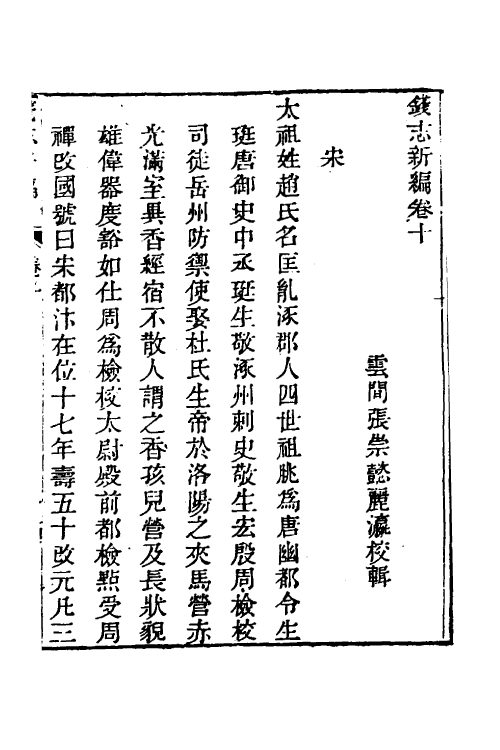 錢志新編卷十
雲間張崇懿麗瀛校輯
宋
太祖姓趙氏名匡胤涿郡人四世祖朓為唐幽都令生
珽唐御史中丞珽生敬涿州刺史敬生宏殷周檢校
司徒岳州防禦使娶杜氏生帝於洛陽之夾馬營赤
光滿室異香經宿不散人謂之香孩兒營及長狀貌
雄偉器度豁如仕周為檢校太尉殿前都檢點受周
禪改國號曰宋都汴在位十七年壽五十改元凡三